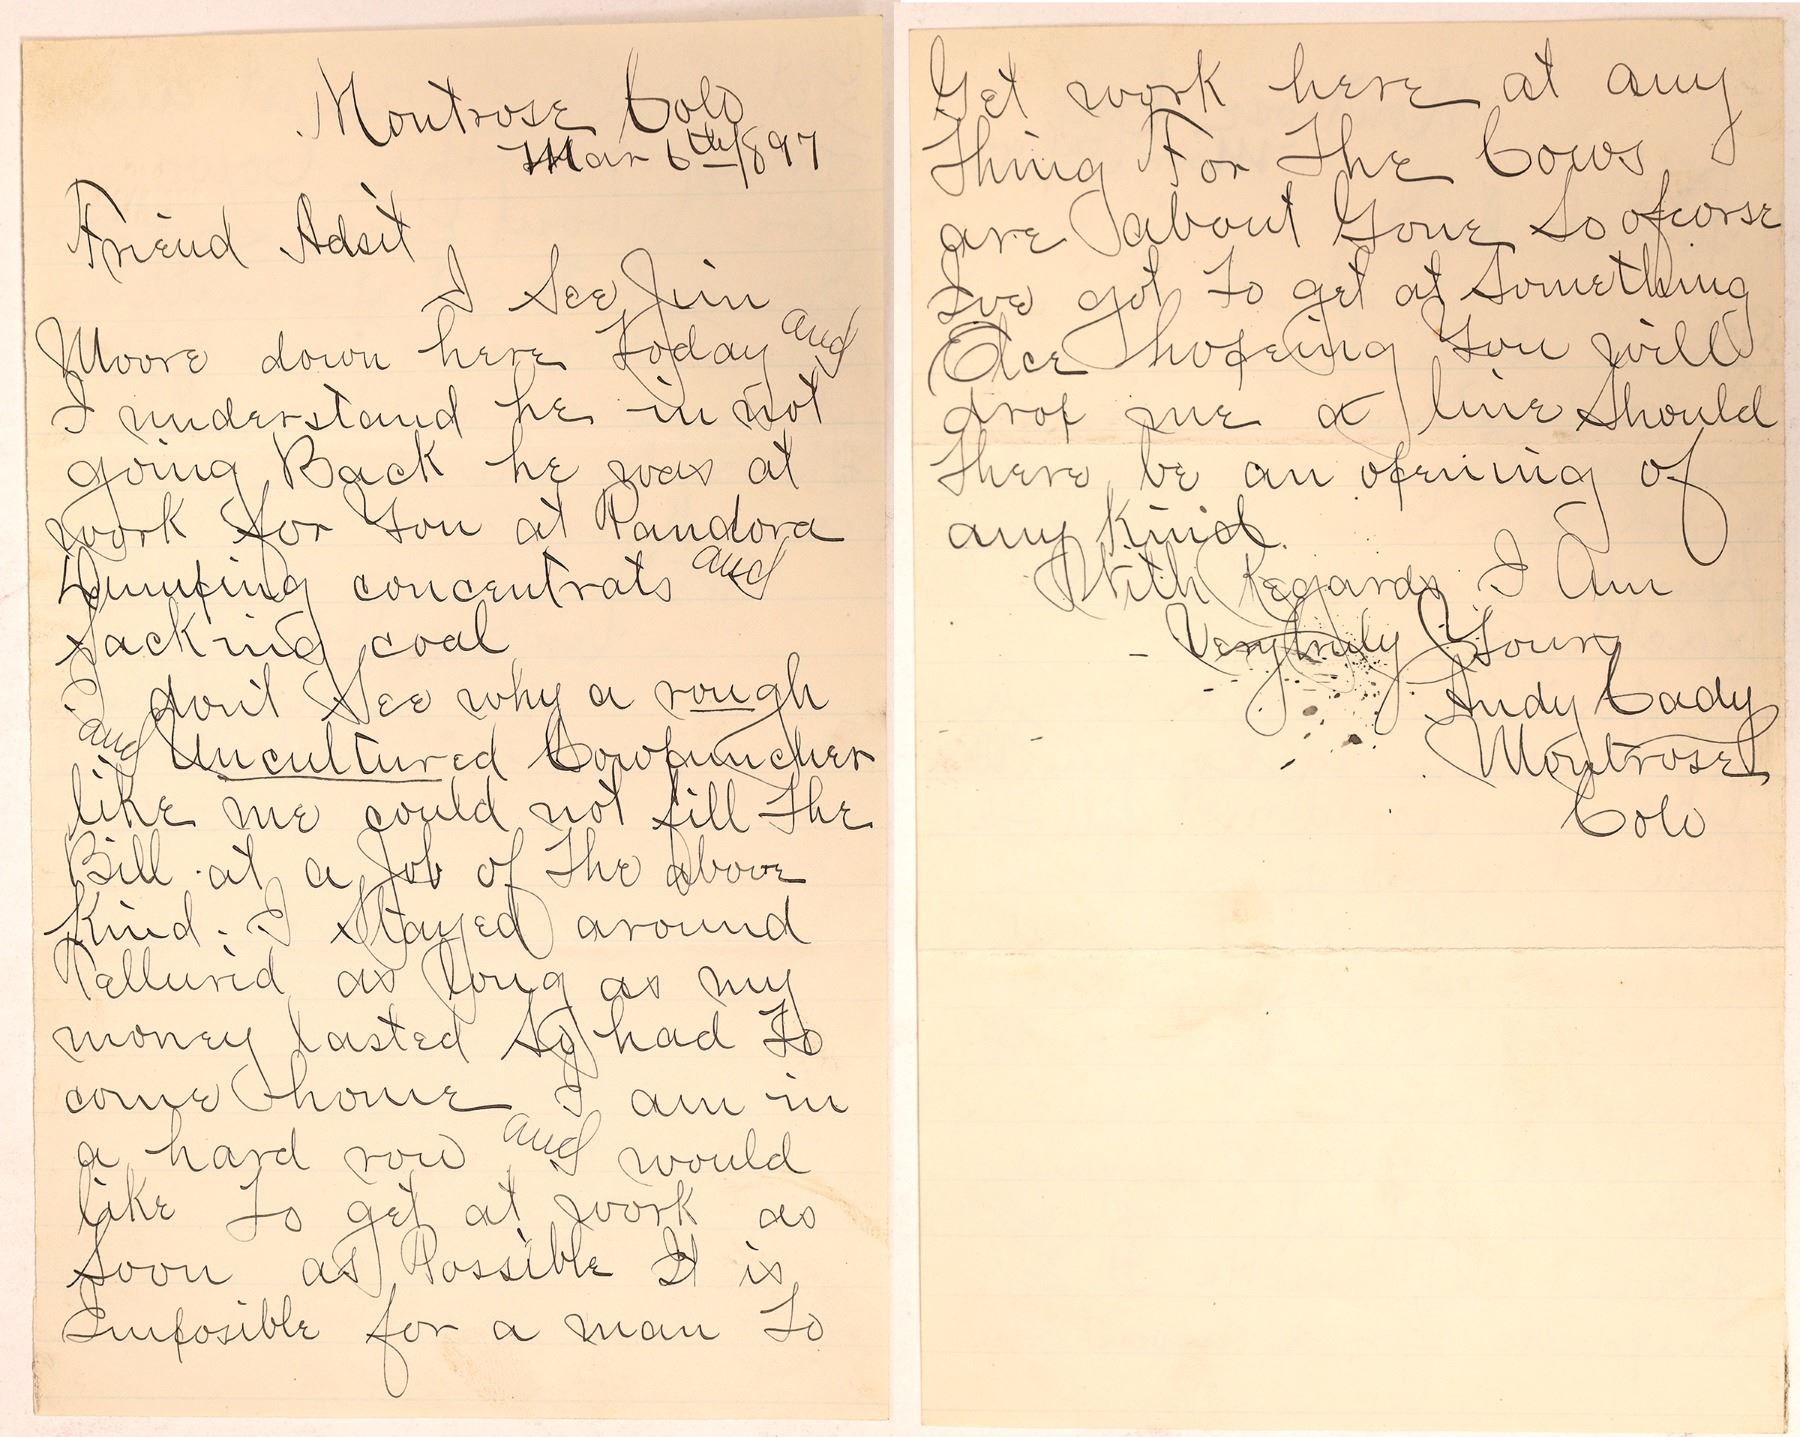 Montrose Colo
Mar 6th/897
Friend Adsit
I See Jim
Moore down here Today and
I understand he in not
going Back he was at
work for You at Pandora
Dumping concentrats and
Sacking coal
I don't See why a rough
and Uncultured Cowpuncher
like me could not fill The
Bill at a Job of The above
Kind. I Stayed around
Tellurid as long as my
money lasted So had To
come home I am in
a hard row and would
like To get at work as
Soon as Possible It is
Imposible for a man To
Get work here at any
Thing For The Cows
are about Gone So ofcorse
Ive got To get at Something
Else hopeing You will
drop me a line Should
There be an opening of
any Kind.
With Regards I Am
Very truly Yours
Andy Cady
Montrose
Colo